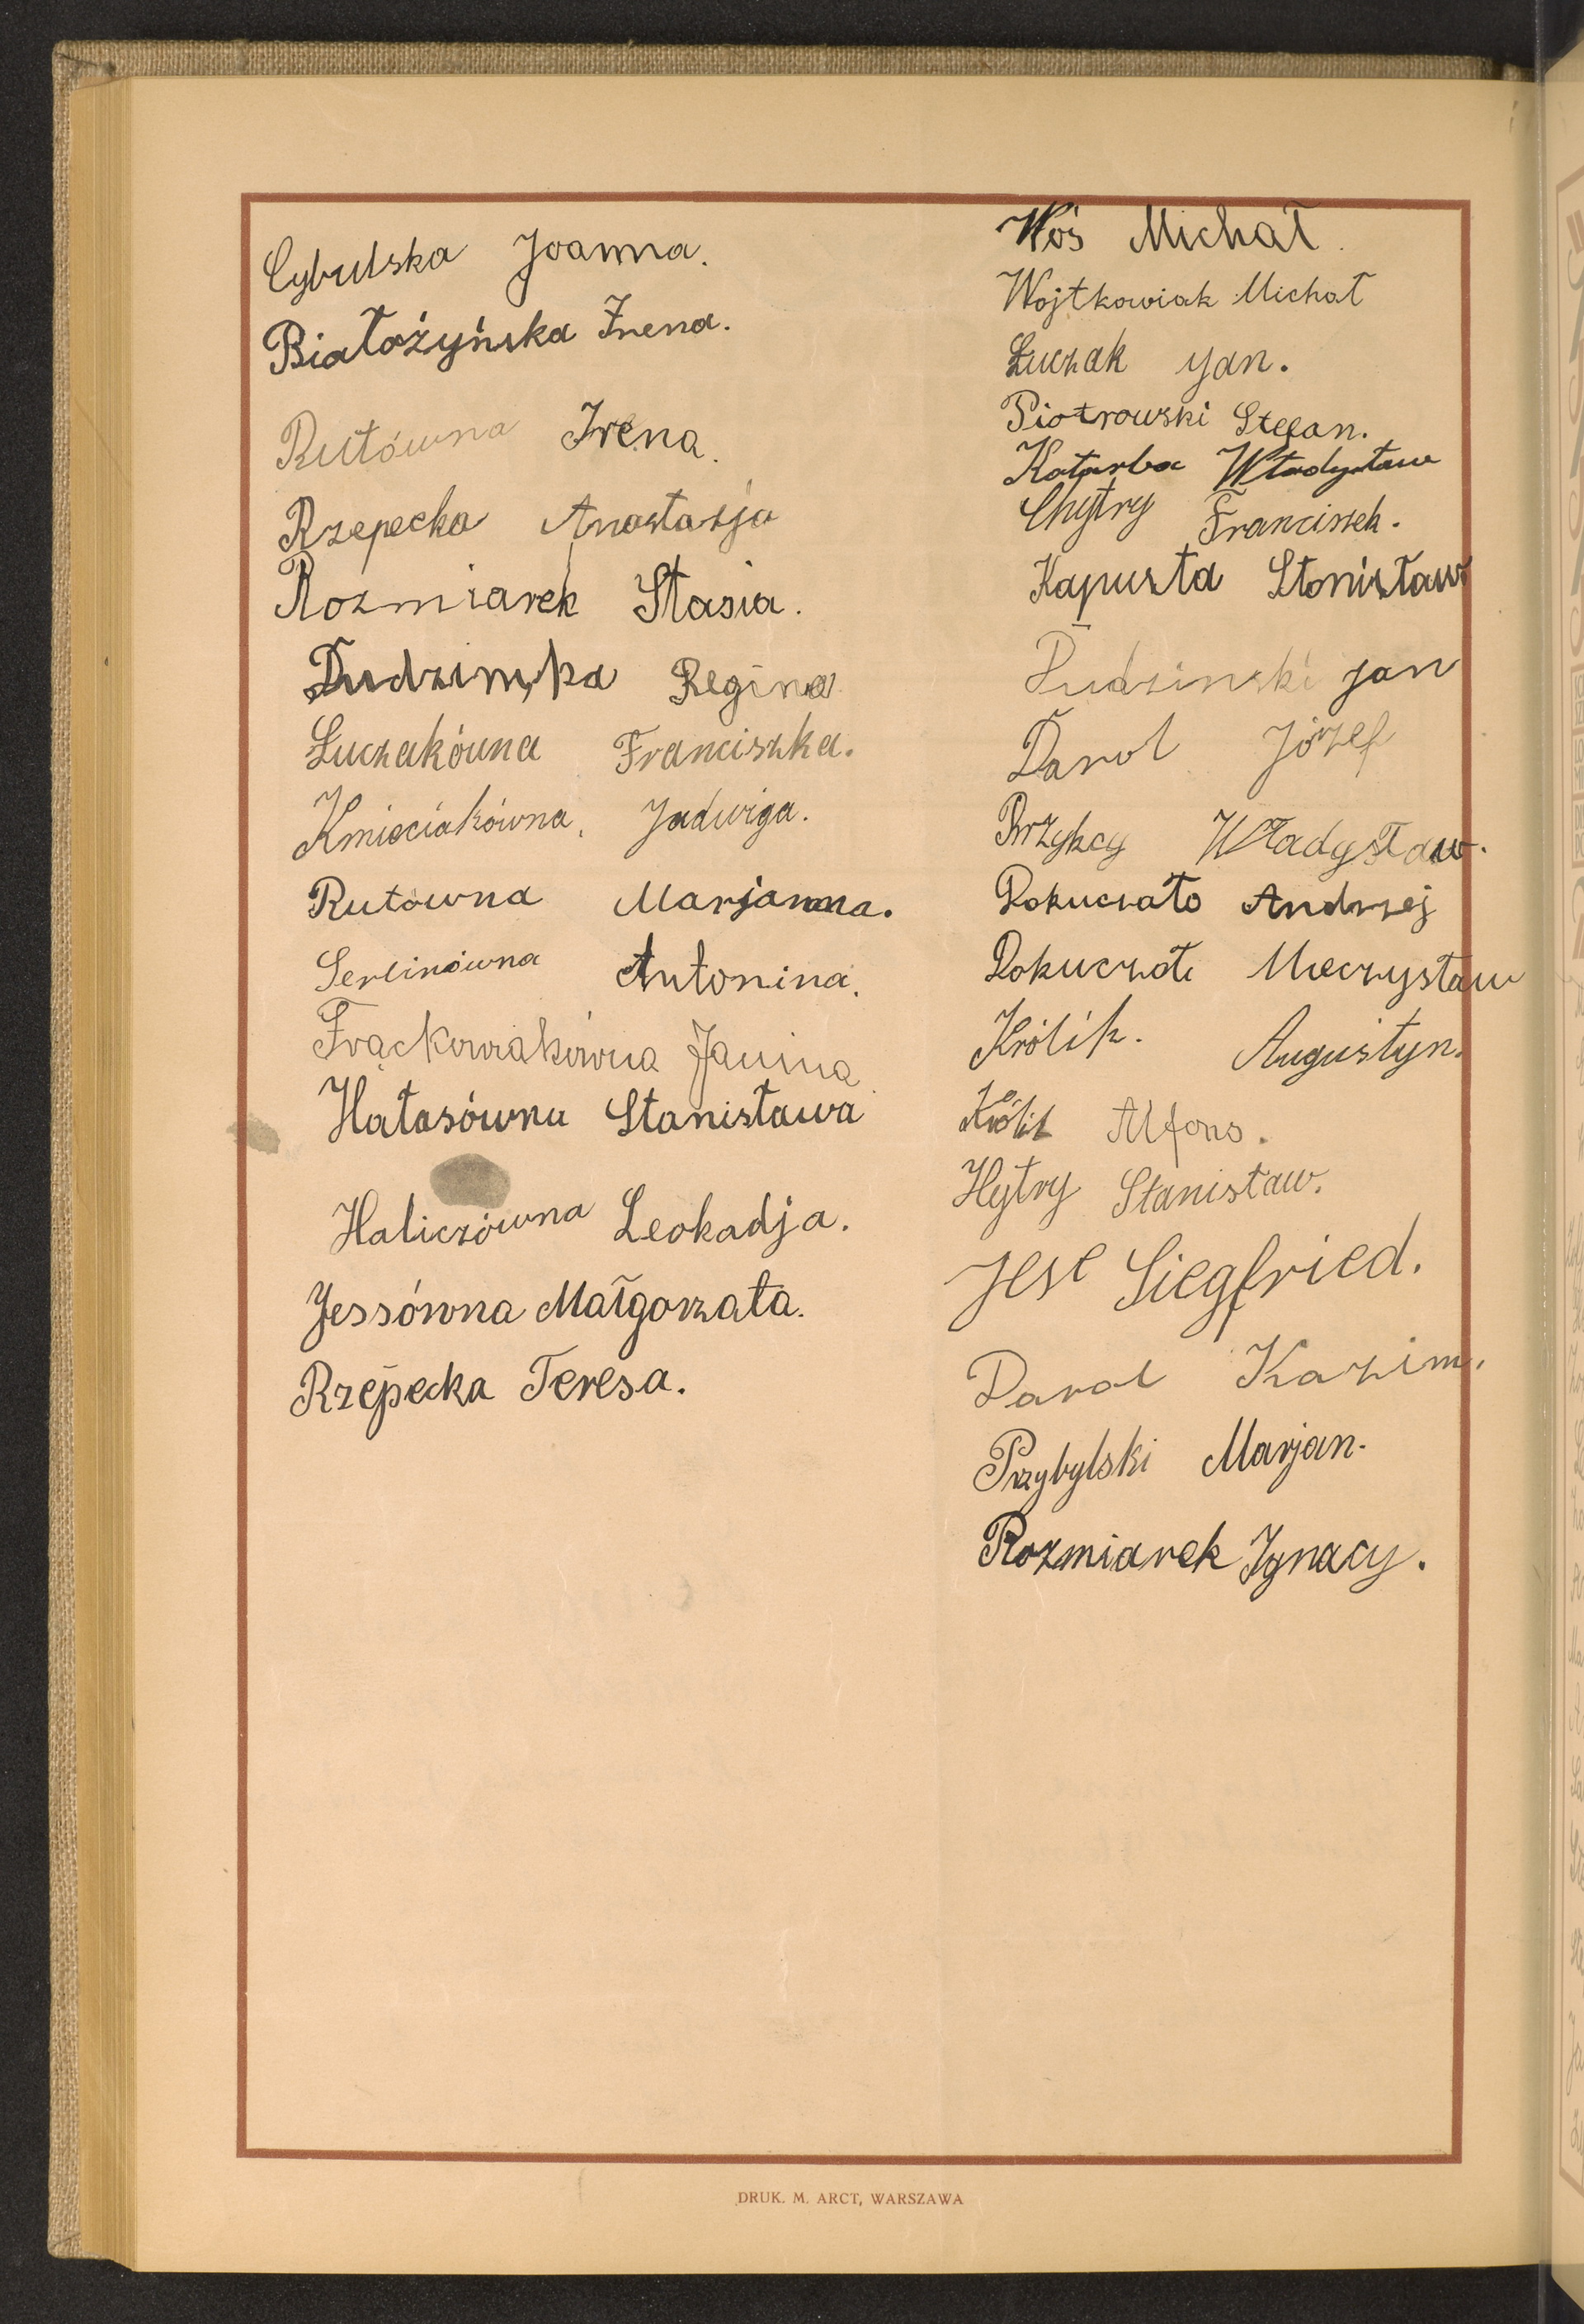 Cybulska Joanna.
Białożyńska Irena.
Rutówna Irena.
Rzepecka Anastazja
Rozmiarek Stasia.
Dudzińska Regina
Łuczakówna Franciszka.
Kmieciakówna, Jadwiga.
Rutówna Marjanna.
Serbinówna Antonina.
Frąckowiakówna Janina
Hałasówna Stanisława
Haliczówna Leokadja.
Jessówna Małgorzata.
Rzepecka Teresa.
Woś Michał.
Wojtkowiak Michał
Łuczak Jan.
Piotrowski Stefan.
Katarba Władysław
Chytry Franciszek.
Kapusta Stanisław
Dudzinski Jan
Darol Józef
Brzykcy Władysław.
Dokuczało Andrzej
Mieczysław
Królik. Augustyn.
Królik Alfons.
Hytry Stanisław.
Jese Siegfried.
Darol Kazim.
Przybylski Marjan.
Rozmiarek Ignacy.
DRUK. M. ARCT, WARSZAWA